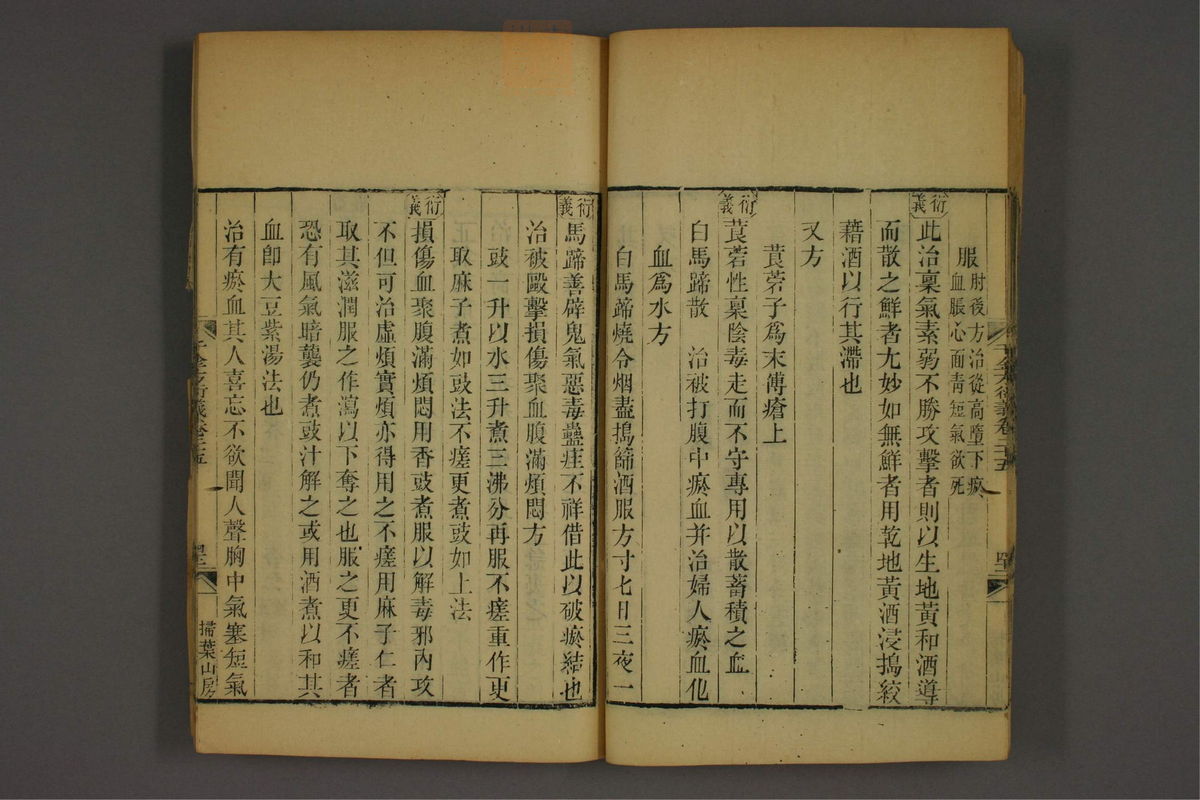 服肘後方治從高墮下瘀
血脹心面青短氣欲死
衍義此治稟氣素弱不勝攻擊者則以生地黃和酒導
而散之鮮者尤妙如無鮮者用乾地黃酒浸搗絞
藉酒以行其滯也
又方
莨菪子爲末傅瘡上
衍義莨菪性稟陰毒走而不守專用以散蓄積之血
白馬蹄散　治被打腹中瘀血并治婦人瘀血化
血爲水方
白馬蹄燒令烟盡搗篩酒服方寸七日三夜一
衍義馬蹄善辟鬼氣惡毒蠱疰不祥借此以破瘀結也
治被毆擊損傷聚血腹滿煩悶方
豉一升以水三升煮三沸分再服不瘥重作更
取麻子煮如豉法不瘥更煮豉如上法
衍義損傷血聚腹滿煩悶用香豉煮服以解毒邪內攻
不但可治虛煩實煩亦得用之不瘥用麻子仁者
取其滋潤服之作瀉以下奪之也服之更不瘥者
恐有風氣暗襲仍煮豉汁解之或用酒煮以和其
血卽大豆紫湯法也
治有瘀血其人喜忘不欲聞人聲胸中氣塞短氣
千金方衍義卷二十五
掃葉山房